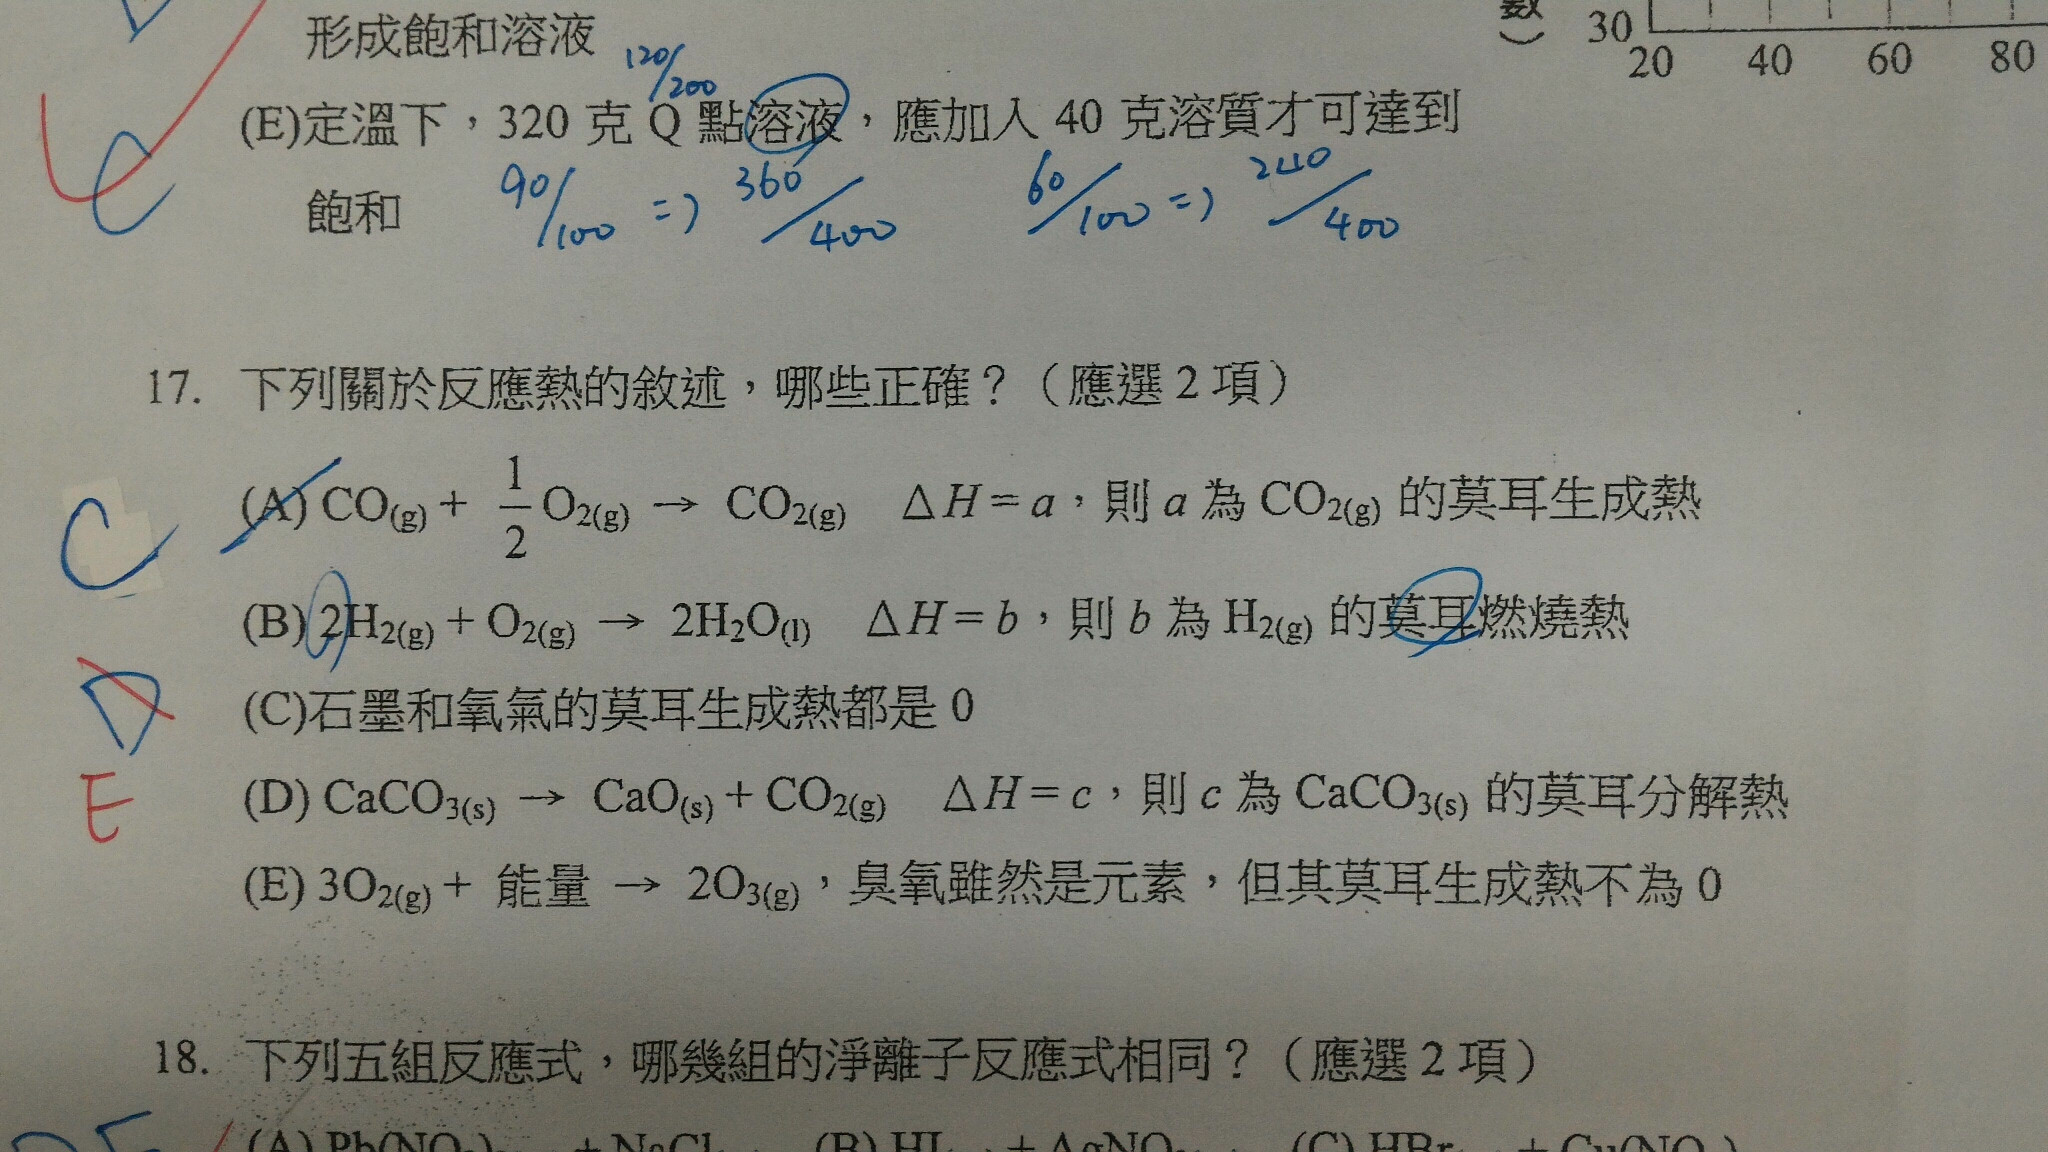 形成飽和溶液
數)
30
20 40 60 80
120/200
(E)定溫下，320 克 Q 點溶液，應加入 40 克溶質才可達到
C
飽和 90/100 => 360/400 60/100 => 240/400
17. 下列關於反應熱的敘述，哪些正確？（應選 2 項）
C
(A) CO(g) + 1/2 O2(g) → CO2(g) ΔH = a，則 a 為 CO2(g) 的莫耳生成熱
(B) 2H2(g) + O2(g) → 2H2O(l) ΔH = b，則 b 為 H2(g) 的莫耳燃燒熱
D
(C)石墨和氧氣的莫耳生成熱都是 0
E
(D) CaCO3(s) → CaO(s) + CO2(g) ΔH = c，則 c 為 CaCO3(s) 的莫耳分解熱
(E) 3O2(g) + 能量 → 2O3(g)，臭氧雖然是元素，但其莫耳生成熱不為 0
18. 下列五組反應式，哪幾組的淨離子反應式相同？（應選 2 項）
(A) Pb(NO3) + NaCl (B) HI + AgNO3 (C) HBr + Cu(NO3)